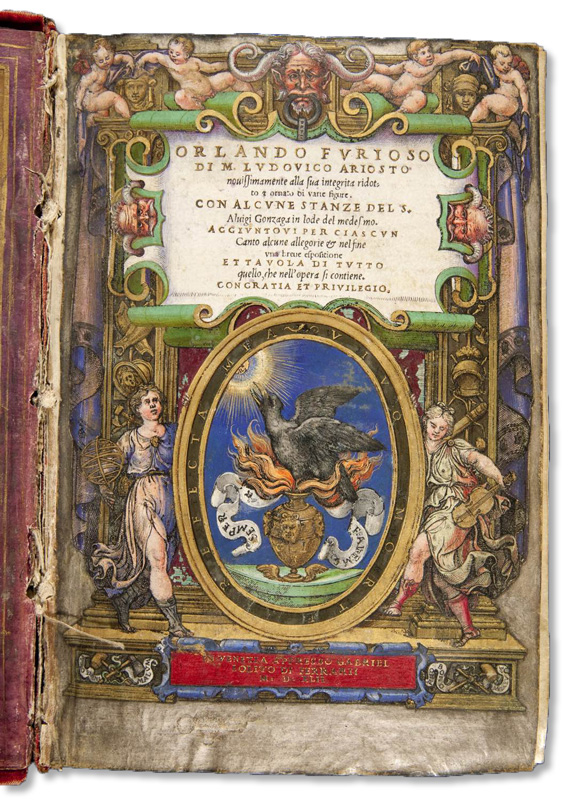 ORLANDO FVRIOSO
DI M. LVDOVICO ARIOSTO
nouissimamente alla sua integrita ridot-
to & ornato di varie figure.
CON ALCVNE STANZE DEL S.
Aluigi Gonzaga in lode del medesmo.
AGGIVNTOVI PER CIASCVN
Canto alcune allegorie & nel fine
vna breue espositione
ET TAVOLA DI TVTTO
quello, che nell'opera si contiene.
CON GRATIA ET PRIVILEGIO.
VIVO MORTE REFECTA MEA
SEMPER
EADEM
IN VINETIA APPRESSO GABRIEL
IOLITO DI FERRARII
M. D. XLII